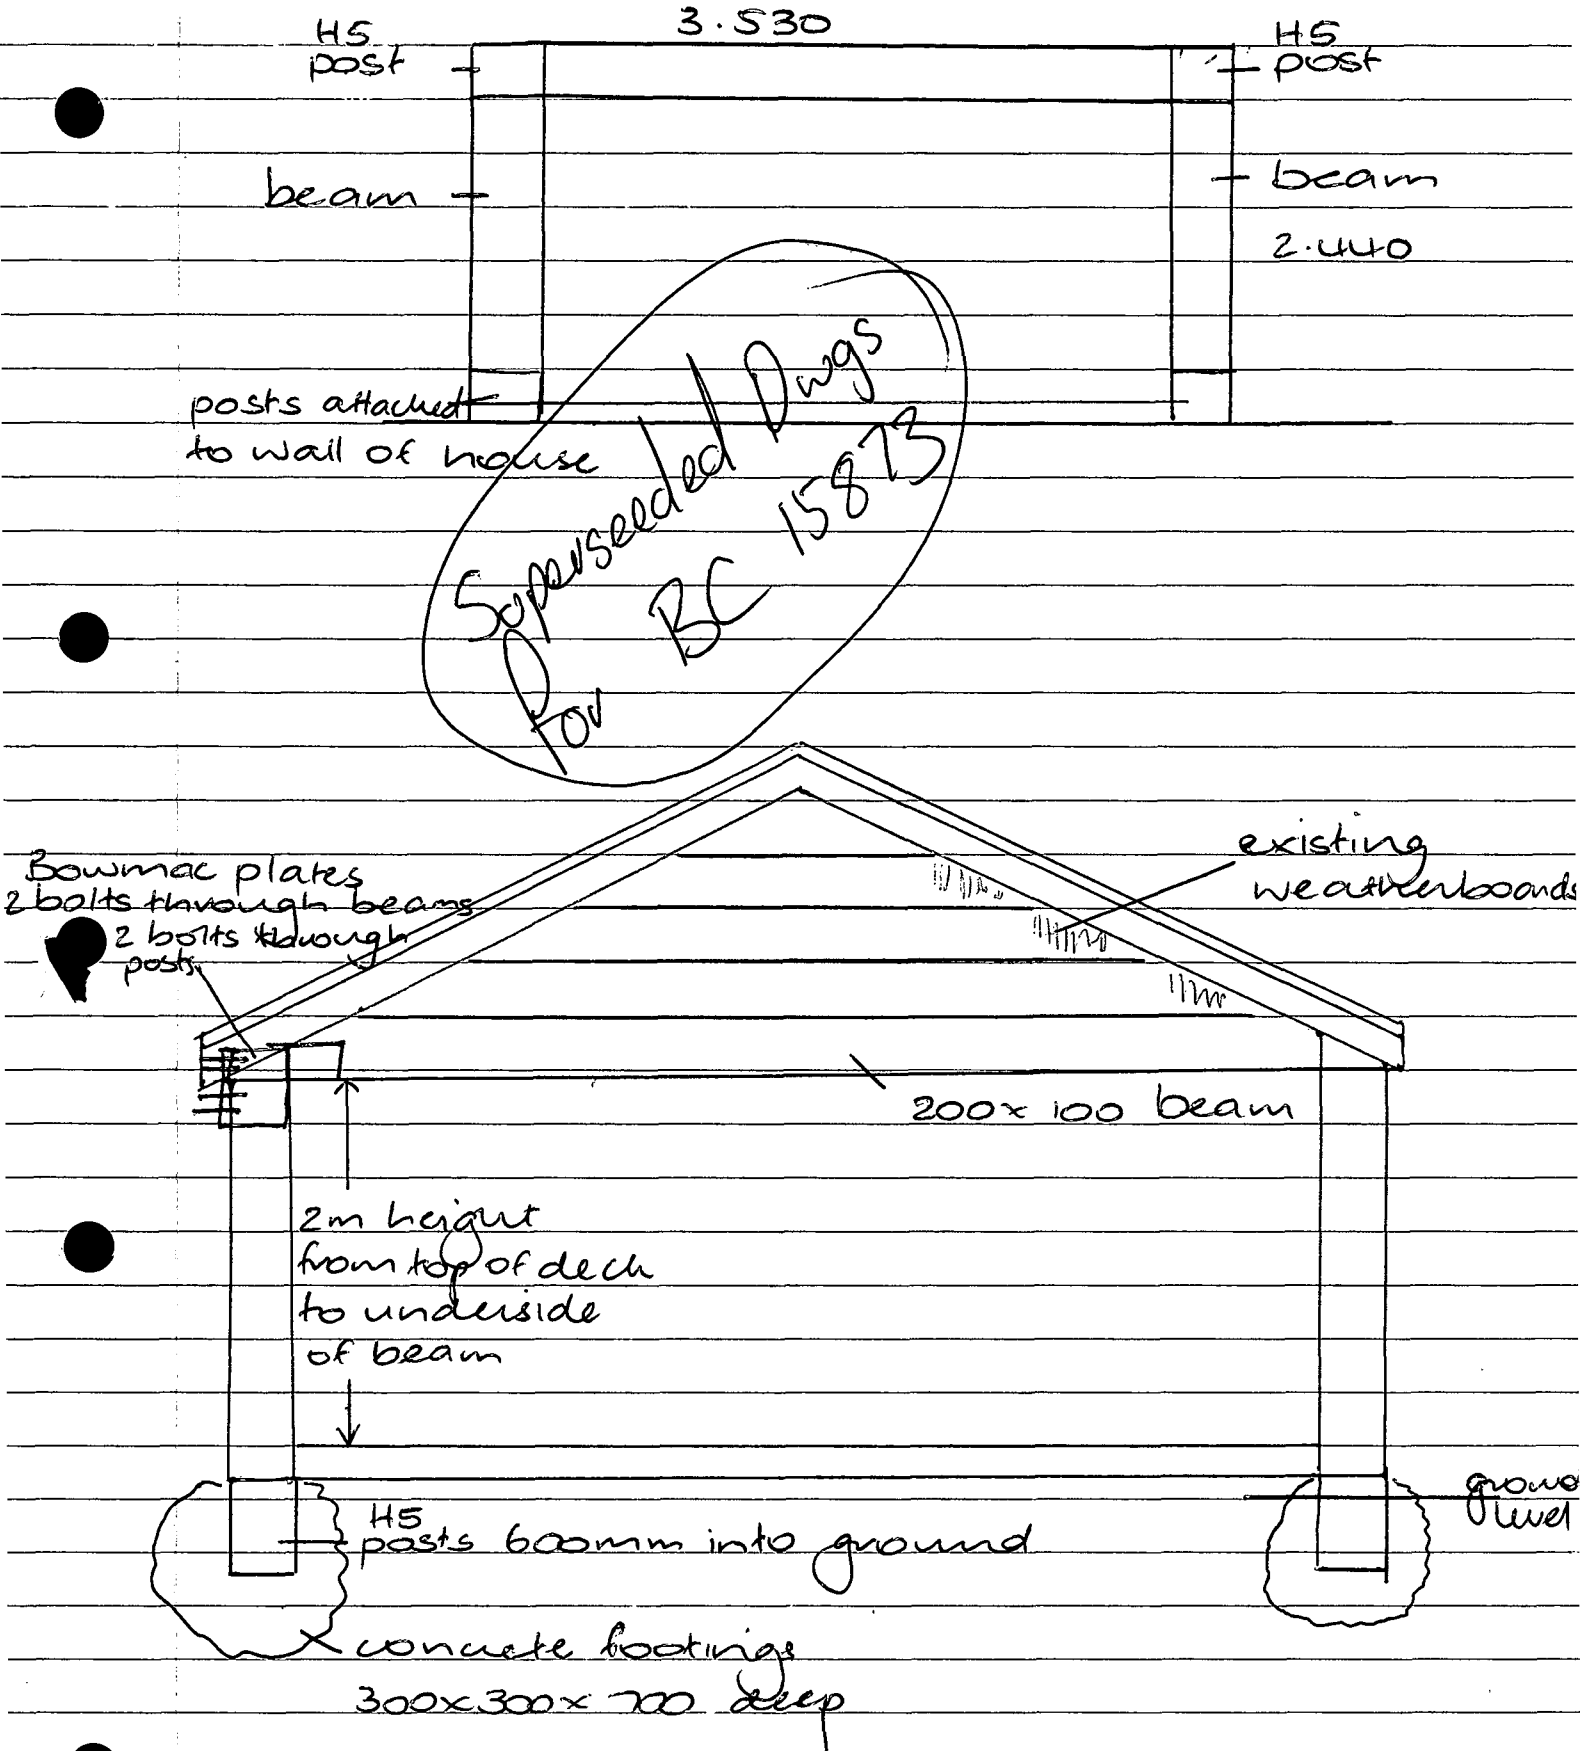 3.530
H5
post
H5
post
beam
beam
2.440
posts attached
to wall of house
Superseeded Dwgs
For BC 15873
Bowmac plates
2 bolts through beams
2 bolts through
posts
existing
weatherboards
200x100 beam
2m height
from top of deck
to underside
of beam
ground
level
H5
posts 600mm into ground
concrete footings
300x300x700 deep